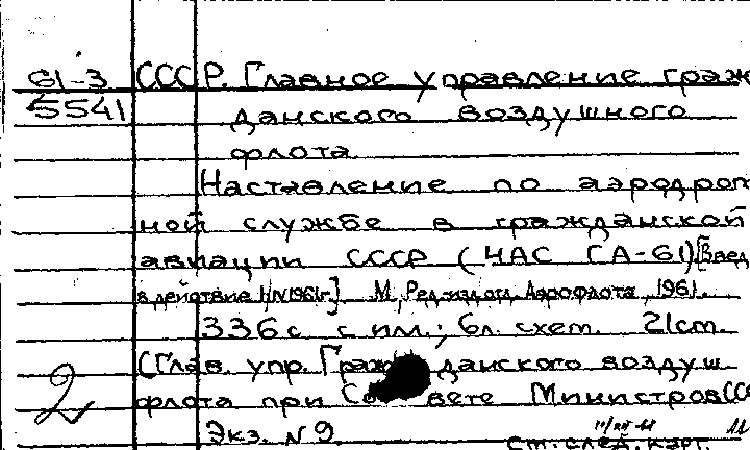 61-3 СССР. Главное управление граж
5541 данского воздушного
флота
Наставление по аэродром
ной службе в гражданской
авиации СССР (НАС ГА-61) [Введ
в действие 1/IV 1961г.] М., Ред-издат. Аэрофлота, 1961.
336 с. с ил.; бл. схем. 21 см.
(Глав. упр. Гражданского воздуш
2 флота при Совете Министров ССС
Экз. N 9.
См. след. карт.